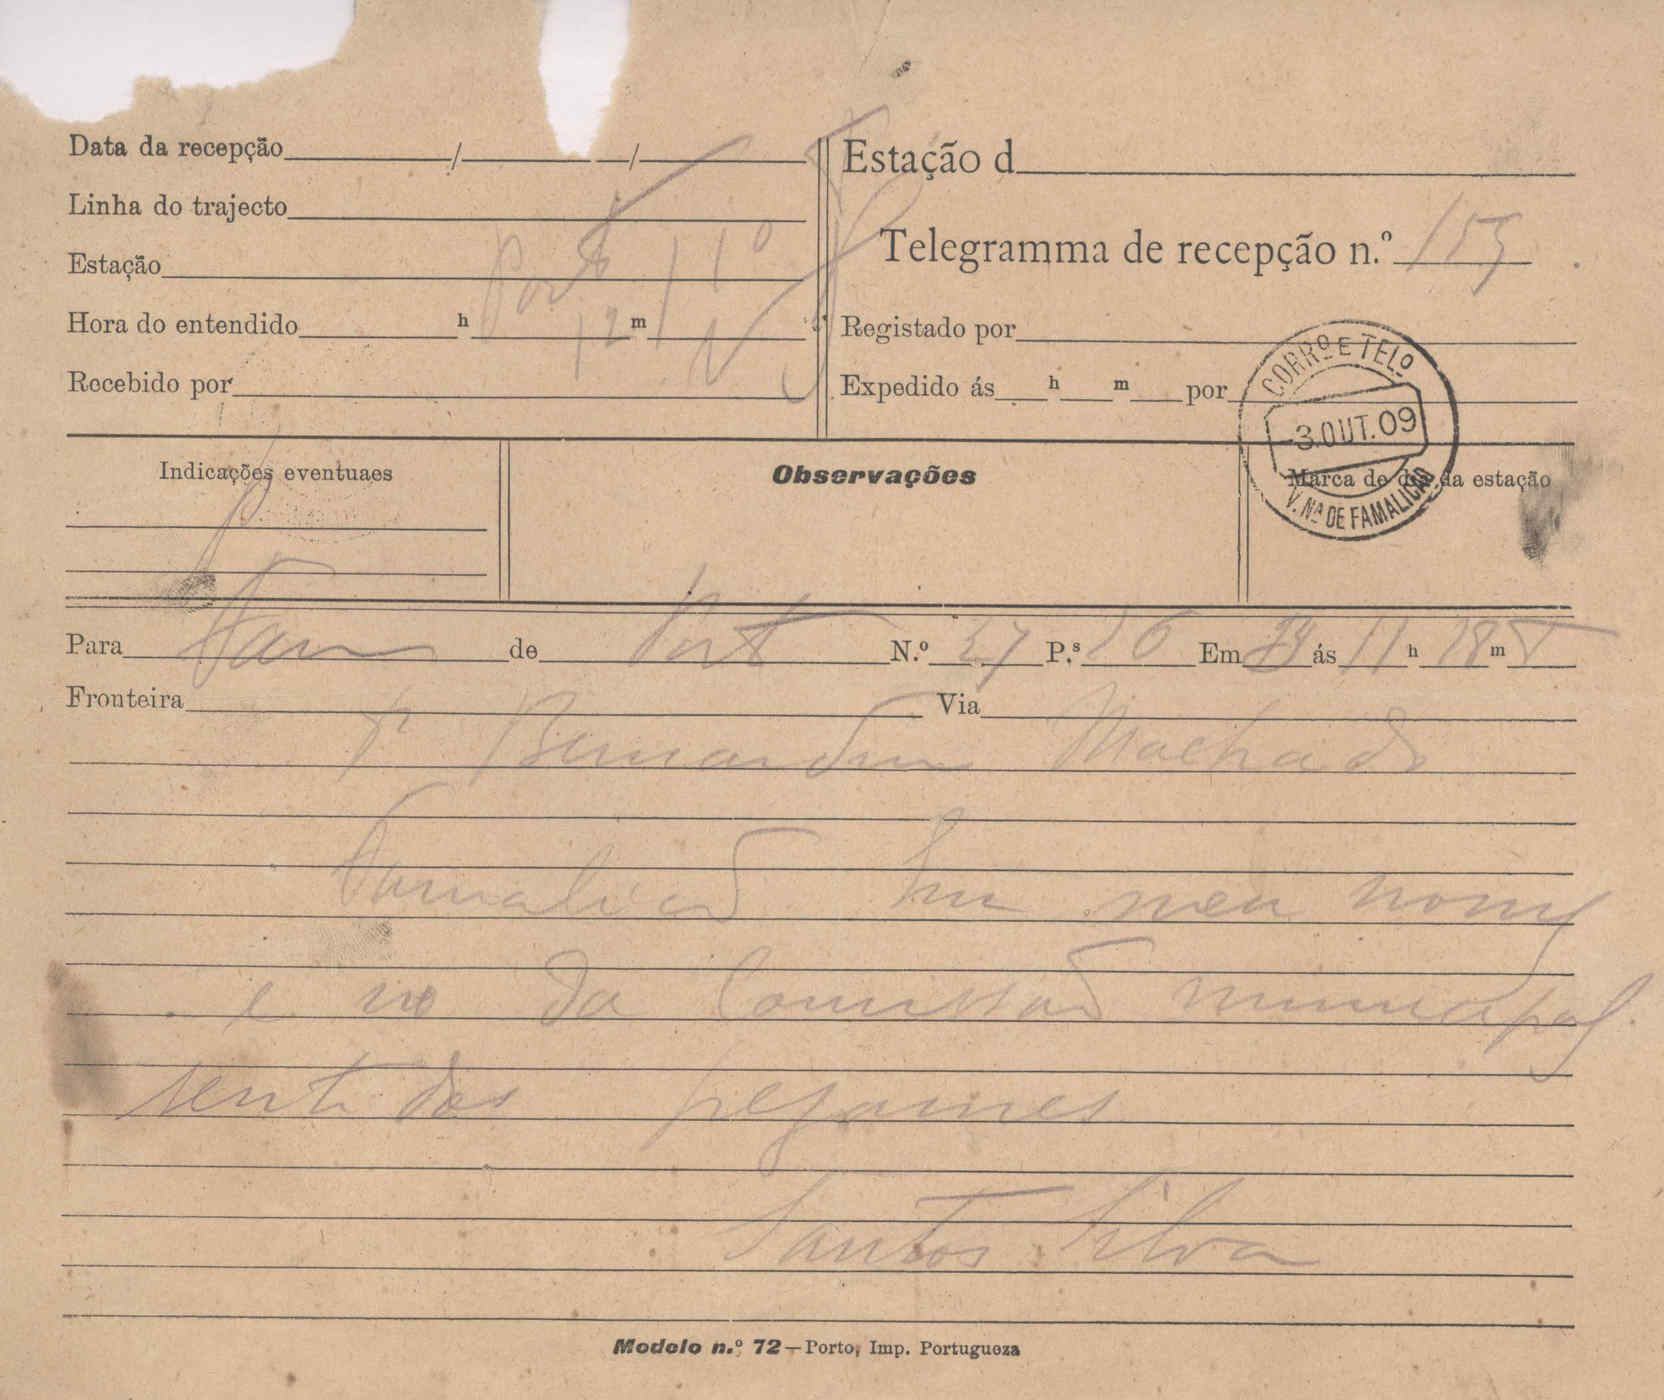 Data da recepção / /
Linha do trajecto
Estação Porto 11º
Hora do entendido h 12 m
Recebido por
Estação d
Telegramma de recepção n.º 153
Registado por
Expedido ás h m por
CORRº E TELº
3.OUT.09
V. Nª DE FAMALICÃO
Indicações eventuaes
Observações
Marca de dia da estação
Para Fam de Porto N.º 27 P.s 26 Em ás 11 h 18 m
Fronteira Via
Bernardino Machado
Famalicão Em meu nome
e no da Comissão municipal
sentidos pezames
Santos Silva
Modelo n.º 72—Porto, Imp. Portugueza